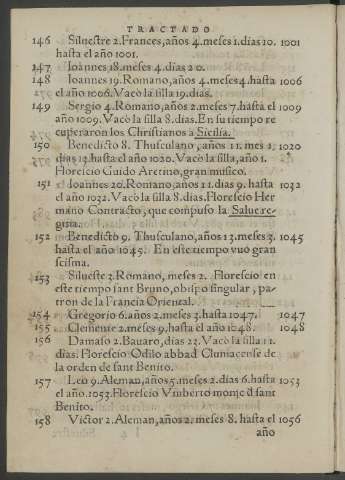 TRACTADO
146 Siluestre 2. Frances, años 4. meses 1. dias 10. 1001
hasta el año 1001.
147 Ioannes 18. meses 4. dias 20.
148 Ioannes 19. Romano, años 4. meses 4. hasta 1006
el año 1006. Vacò la silla 19. dias.
149 Sergio 4. Romano, años 2. meses 7. hasta el 1009
año 1009. Vacò la silla 8. dias. En su tiempo re
cuperaron los Christianos a Sicilia.
150 Benedicto 8. Thusculano, años 11. mes 1, 1020
dias 14. hasta el año 1020. Vacò la silla, año 1.
Florescio Guido Aretino, gran musico.
151 Ioannes 20. Romano, años 11. dias 9. hasta 1032
el año 1032. Vacò la silla 8. dias. Florescio Her
mano Contracto, que compuso la Salue re-
gina.
152 Benedicto 9. Thusculano, años 13. meses 3. 1045
hasta el año 1045. En este tiempo vuo gran
scisma.
153 Silueste 3. Romano, meses 2. Florescio en
este tiempo sant Bruno, obispo singular, pa-
tron de la Francia Oriental.
154 Gregorio 6. años 2. meses 3. hasta 1047. 1047
155 Clemente 2. meses 9. hasta el año 1048. 1048
156 Damaso 2. Bauaro, dias 23. Vacò la silla 11.
dias. Florescio Odilo abbad Cluniacense de
la orden de sant Benito.
157 Leo 9. Aleman, años 5. meses 2. dias 6. hasta 1053
el año. 1053. Florescio Vmberto monge d sant
Benito.
158 Victor 2. Aleman, años 2. meses 8. hasta el 1056
año